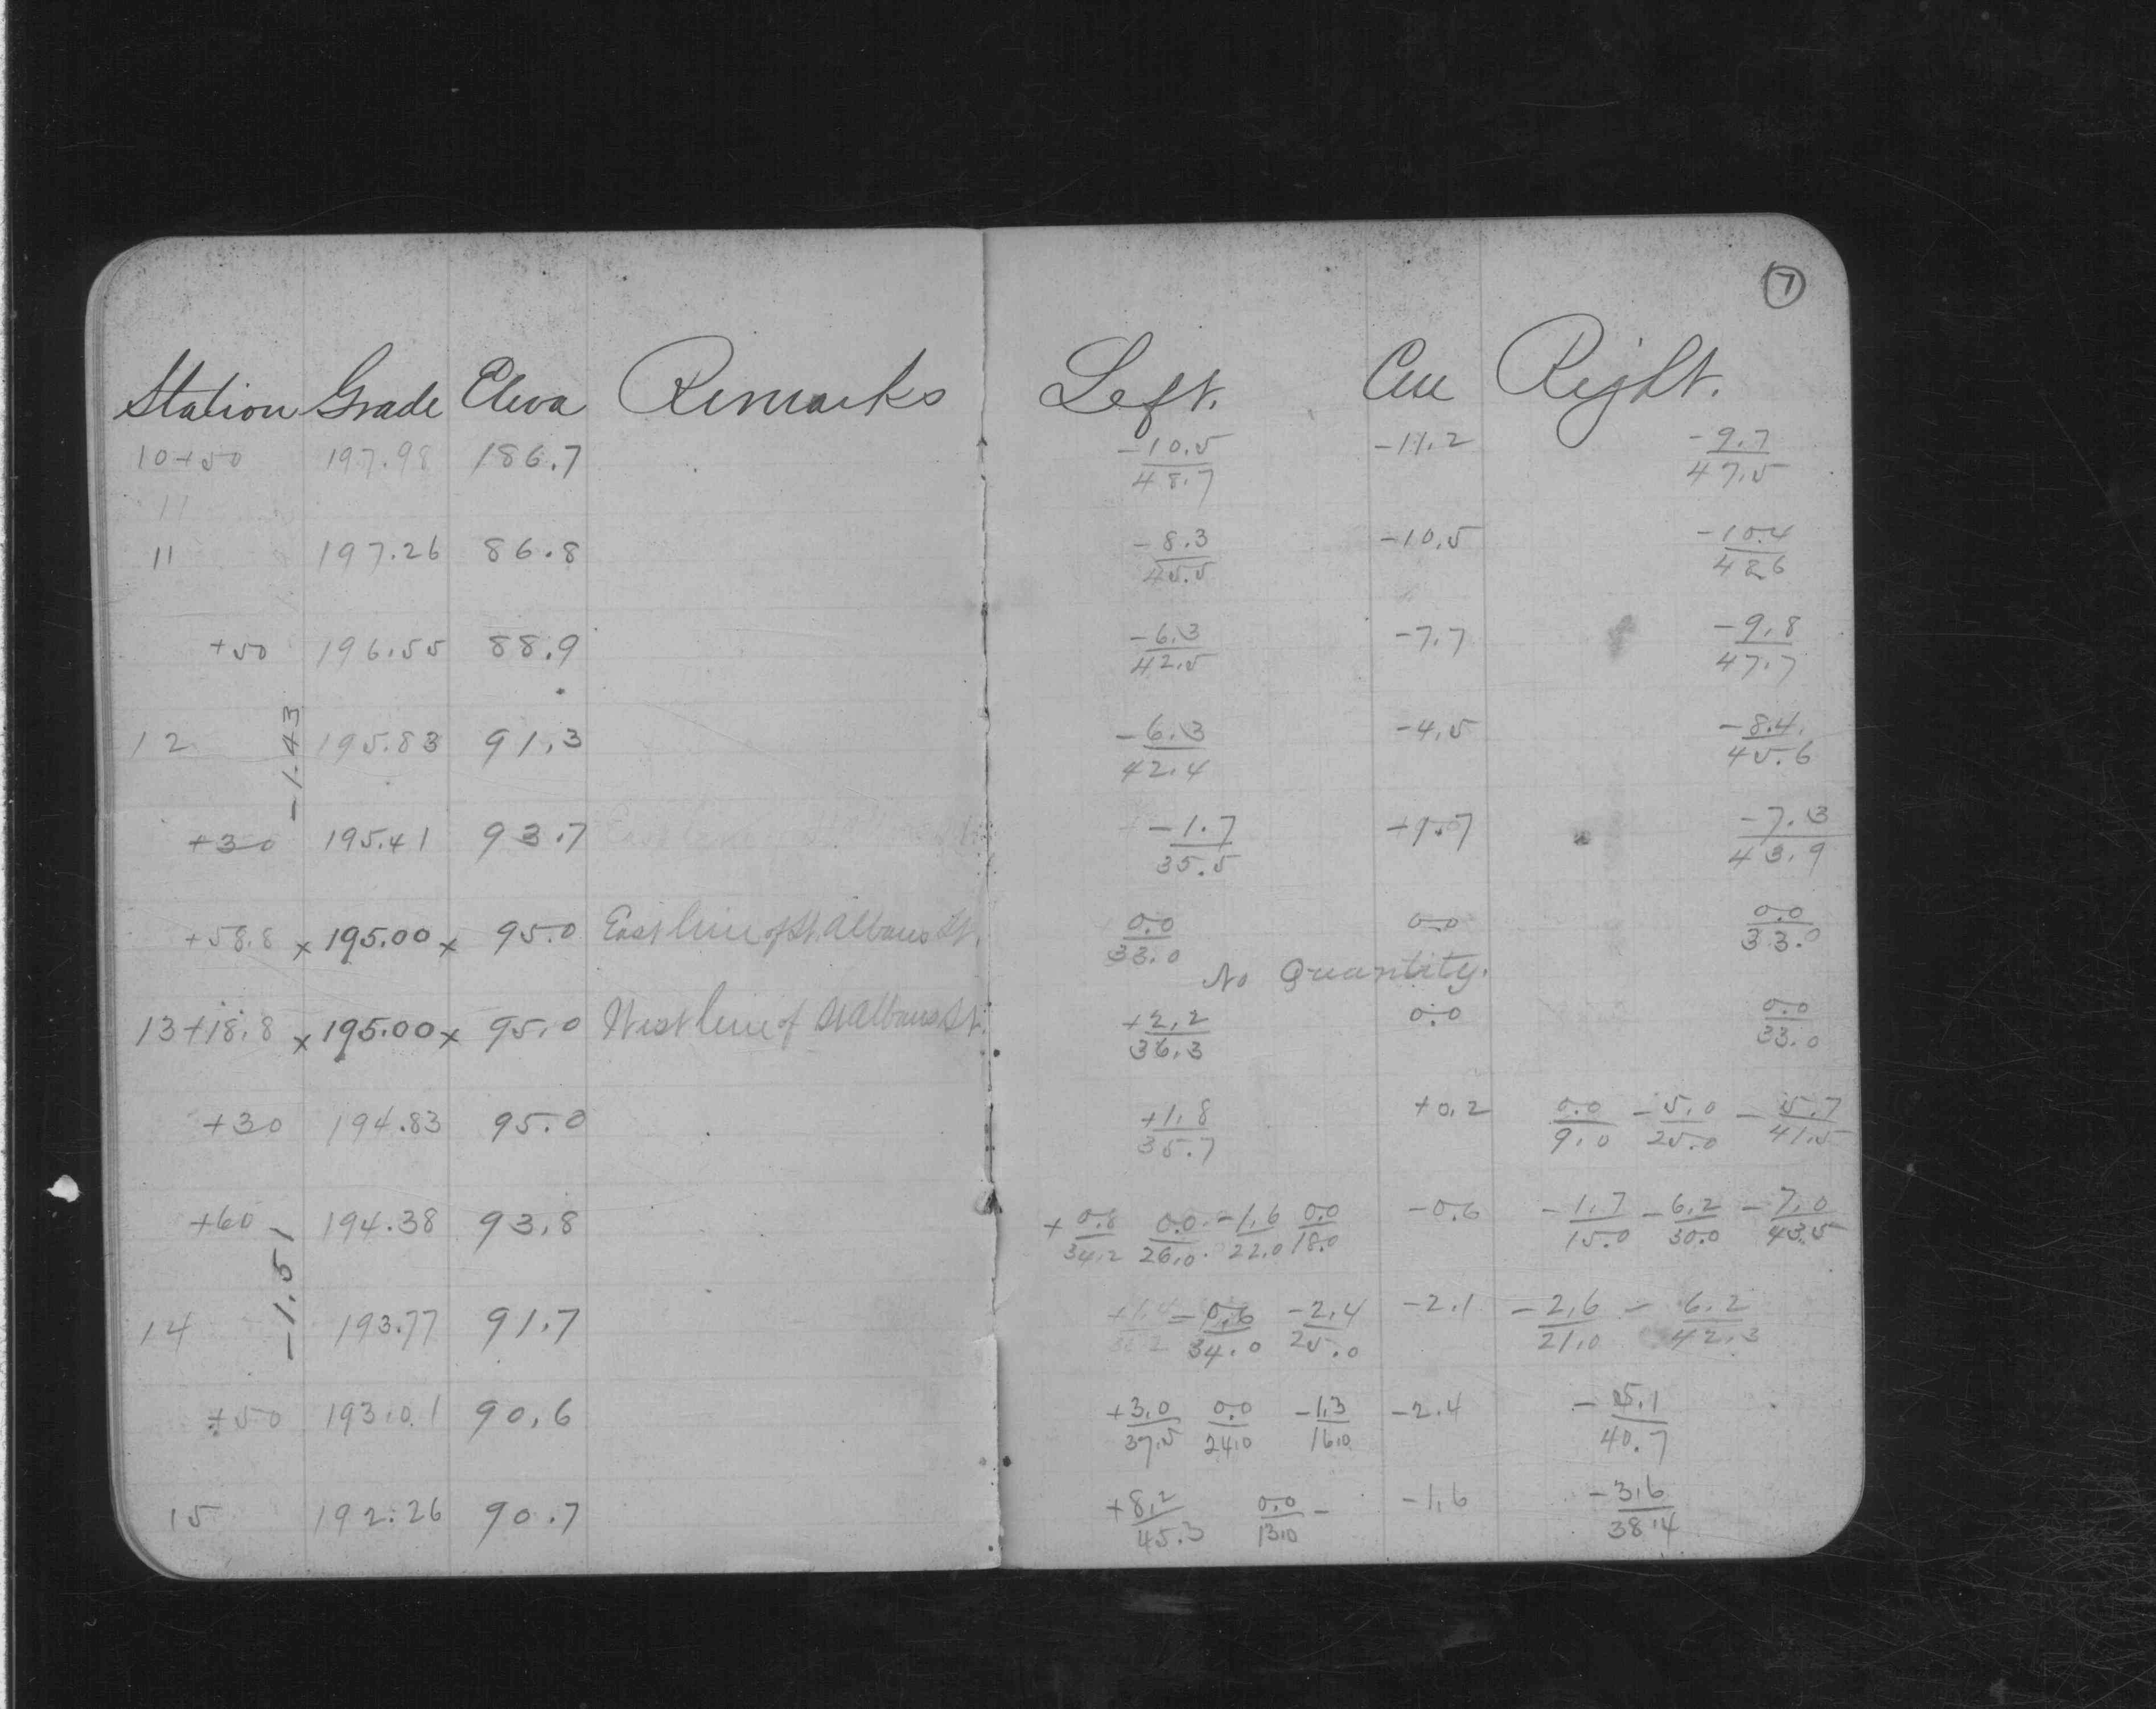 7
Station Grade Eleva Remarks Left. Cen Right.
10+50 197.98 186.7 -10.5/48.7 -11.2 -9.7/47.5
11
11 197.26 86.8 -8.3/45.5 -10.5 -10.4/48.6
+50 196.55 88.9 -6.3/42.5 -7.7 -9.8/47.7
12 195.83 91.3 -6.3/42.4 -4.5 -8.4/45.6
-1.43
+30 195.41 93.7 -1.7/35.5 -7.3/43.9
+58.8 x 195.00 x 95.0 East line of St. Albans St. 0.0/33.0 0.0 0.0/33.0
No Quantity.
13+18.8 x 195.00 x 95.0 West line of St Albans St. +2.2/36.3 0.0 0.0/33.0
+30 194.83 95.0 +1.8/35.7 +0.2 0.0/9.0 -5.0/25.0 -5.7/41.5
+60 194.38 93.8 +0.8/34.2 0.0/26.0 -1.6/22.0 0.0/18.0 -0.6 -1.7/15.0 -6.2/30.0 -7.0/43.5
-1.51
14 193.77 91.7 -0.6/34.0 -2.4/25.0 -2.1 -2.6/21.0 -6.2/42.3
+50 193.01 90.6 +3.0/37.5 0.0/24.0 -1.3/16.0 -2.4 -5.1/40.7
15 192.26 90.7 +8.2/45.3 0.0/13.0 - -1.6 -3.6/38.4